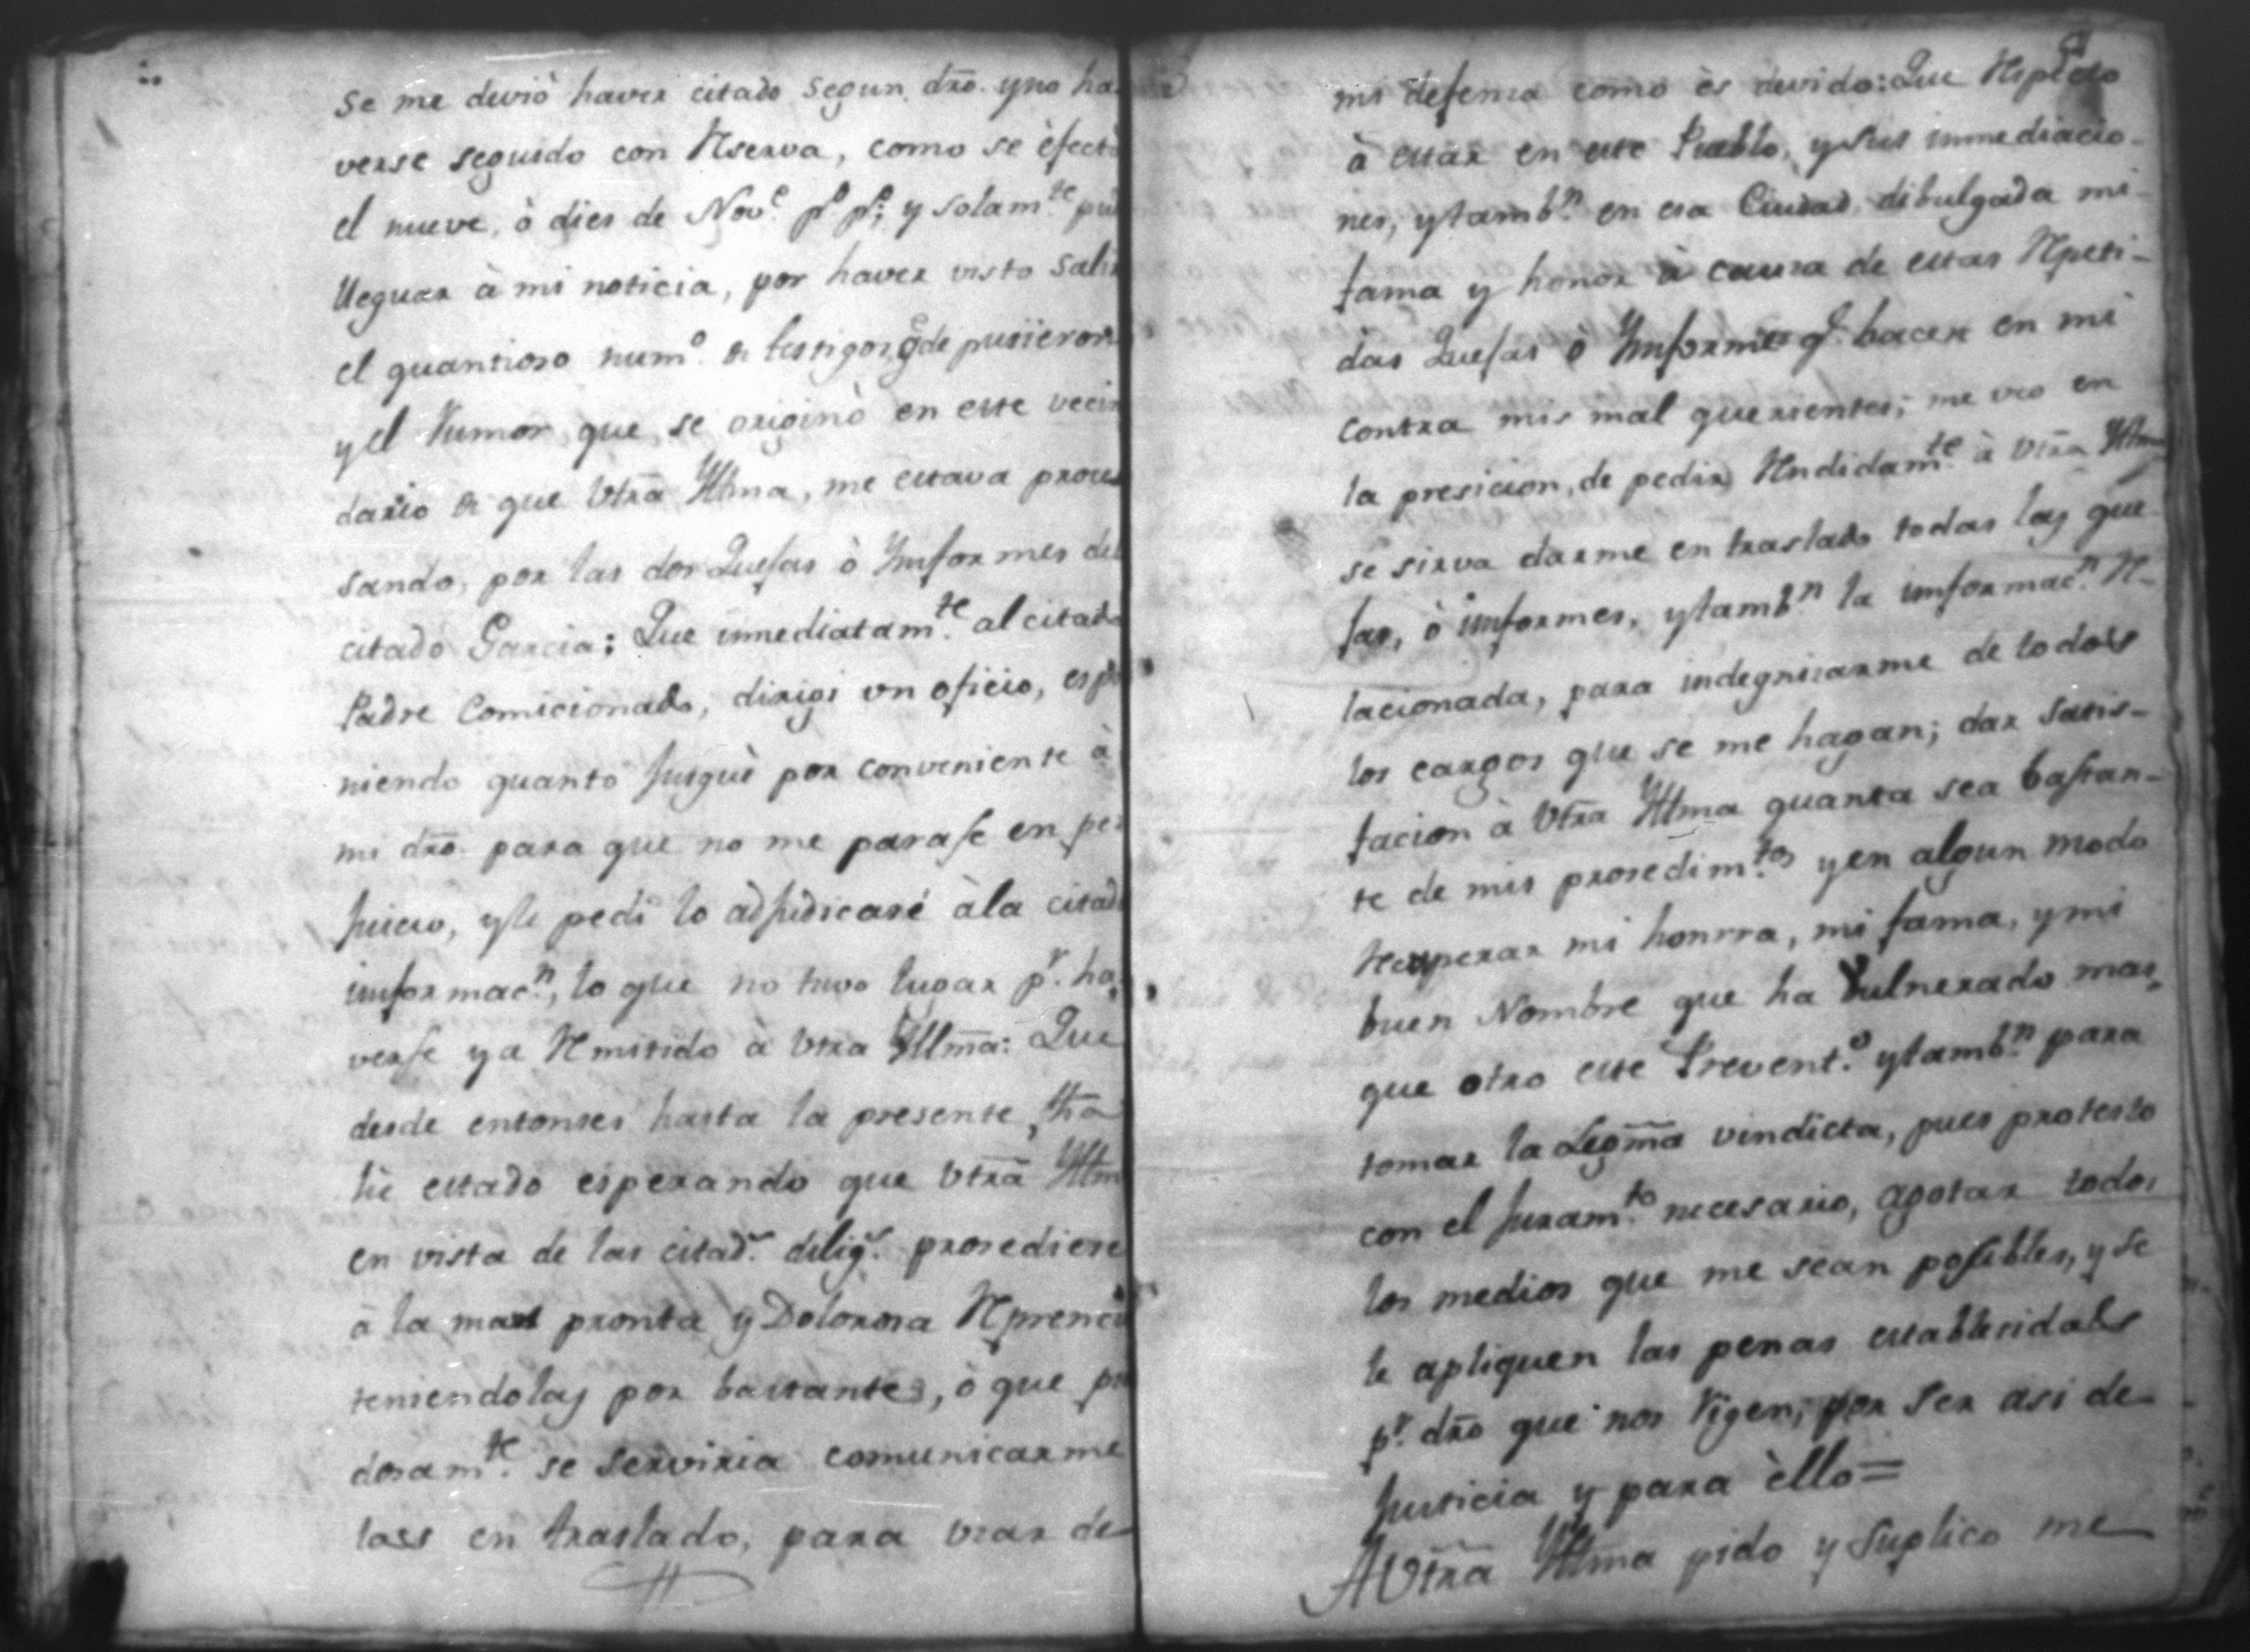 se me devió haver citado segun dr̃o. y no ha-
verse seguido con Reserva, como se efectò
el nueve, ò dies de Nov.e p.o p.o; y solam.te pudo
llegar à mi noticia, por haver visto salir
el quantioso num.o de testigos, q.e depusieron
y el Rumor, que se originò en este vecin
dario de que Vtr̃a Yltma, me estava proce
sando, por las dos Quejas ò Ynformes del
citado Garcia: Que inmediatam.te al citado
Padre Comicionado, dirigi vn oficio, espo
niendo quanto jusguè por conveniente à
mi dr̃o. para que no me parase en per
juicio, y le pedi lo adjudicase à la citada
imformac.n, lo que no tuvo lugar p.r ha-
verse ya Remitido à Vtra Yllm̃a: Que
desde entonses hasta la presente fh̃a
hè estado esperando que Vtr̃a Yltma
en vista de las citad.s dilig.s prosediese
à la mas pronta y Dolorosa Reprenci
teniendolas por bastantes, ò que pia
dosam.te se serviria comunicarme
las en traslado, para vsar de
mi defensa como ès devido: Que Respecto
à estar en este Pueblo, y sus inmediacio-
nes, y tamb.n en esa Ciudad dibulgada mi
fama y honor à causa de estas Repeti-
das Quejas ò Ymformes q.e hacen en mi
contra mis mal querientes; me veo en
la presicion, de pedir Rendidam.te à Vtr̃a Yltma
se sirva darme en traslado todas las que-
jas, ò imformes, y tamb.n la imformac.n Re-
lacionada, para indegnisarme de todos
los cargos que se me hagan; dar satis-
facion à Vtr̃a Yltma quanta sea bastan-
te de mis prosedim.tos y en algun modo
Recuperar mi honrra, mi fama, y mi
buen Nombre que ha Vulnerado mas,
que otro este Prevent.o y tamb.n para
tomar la Legm̃a vindicta, pues protesto
con el juram.to necesario, agotar todos
los medios que me sean posibles, y se
le apliquen las penas establesidas
p.r dr̃o que nos Rigen, por ser asi de
Justicia y para èllo=
A Vtr̃a Yltma pido y suplico me